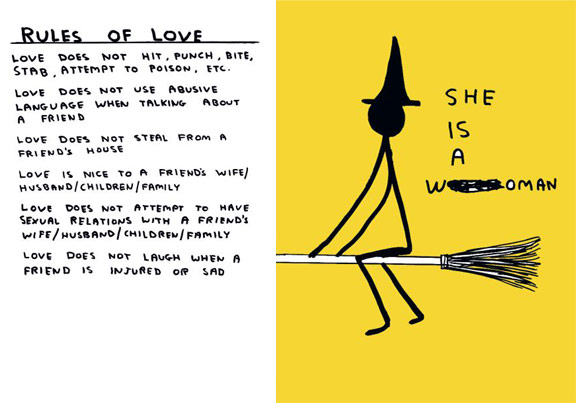 RULES OF LOVE
LOVE DOES NOT HIT, PUNCH, BITE,
STAB, ATTEMPT TO POISON, ETC.
LOVE DOES NOT USE ABUSIVE
LANGUAGE WHEN TALKING ABOUT
A FRIEND
LOVE DOES NOT STEAL FROM A
FRIEND'S HOUSE
LOVE IS NICE TO A FRIEND'S WIFE/
HUSBAND/CHILDREN/FAMILY
LOVE DOES NOT ATTEMPT TO HAVE
SEXUAL RELATIONS WITH A FRIEND'S
WIFE/HUSBAND/CHILDREN/FAMILY
LOVE DOES NOT LAUGH WHEN A
FRIEND IS INJURED OR SAD
SHE
IS
A
W OMAN